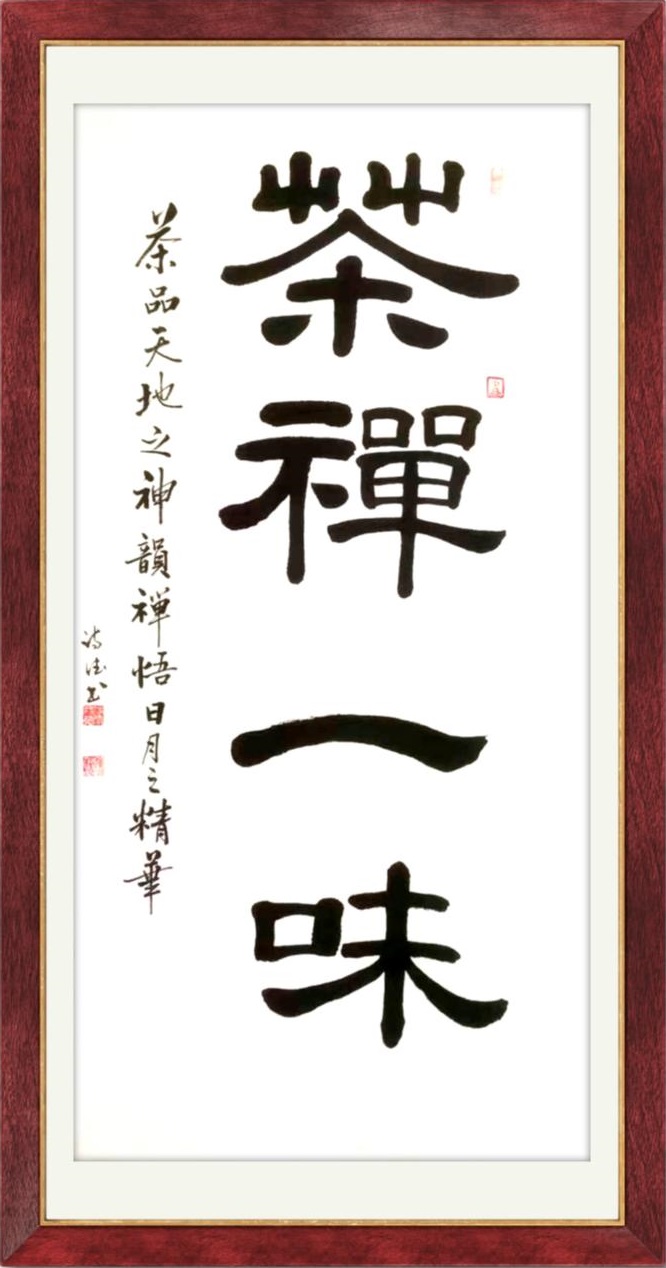 茶禪一味
茶品天地之神韻禪悟日月之精華